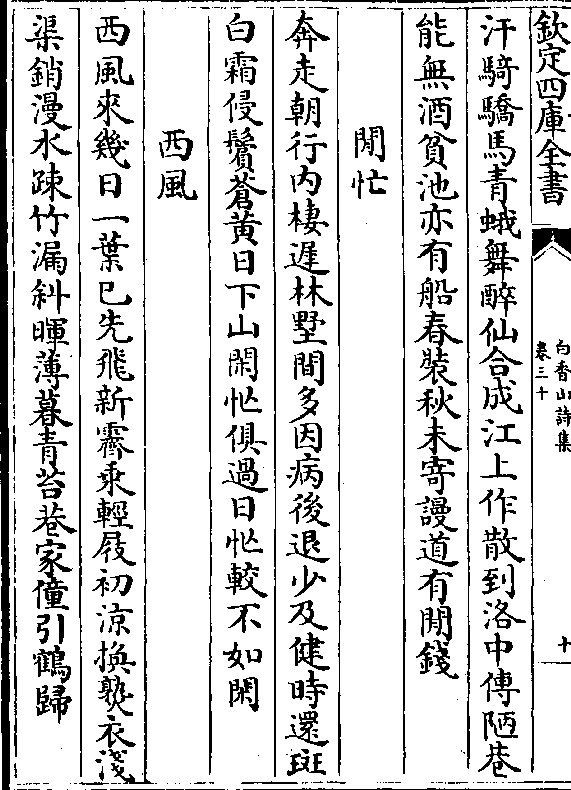 欽定四庫全書
白香山詩集
卷三十
十
汗騎驕馬青蛾舞醉仙合成江上作散到洛中傳陋巷
能無酒貧池亦有船春裝秋未寄謾道有閒錢
閒忙
奔走朝行內棲遲林墅間多因病後退少及健時還斑
白霜侵鬢蒼黄日下山閑忙俱過日忙較不如閑
西風
西風來幾日一葉已先飛新霽乘輕屐初涼換熟衣淺
渠銷漫水疎竹漏斜暉薄暮青苔巷家僮引鶴歸